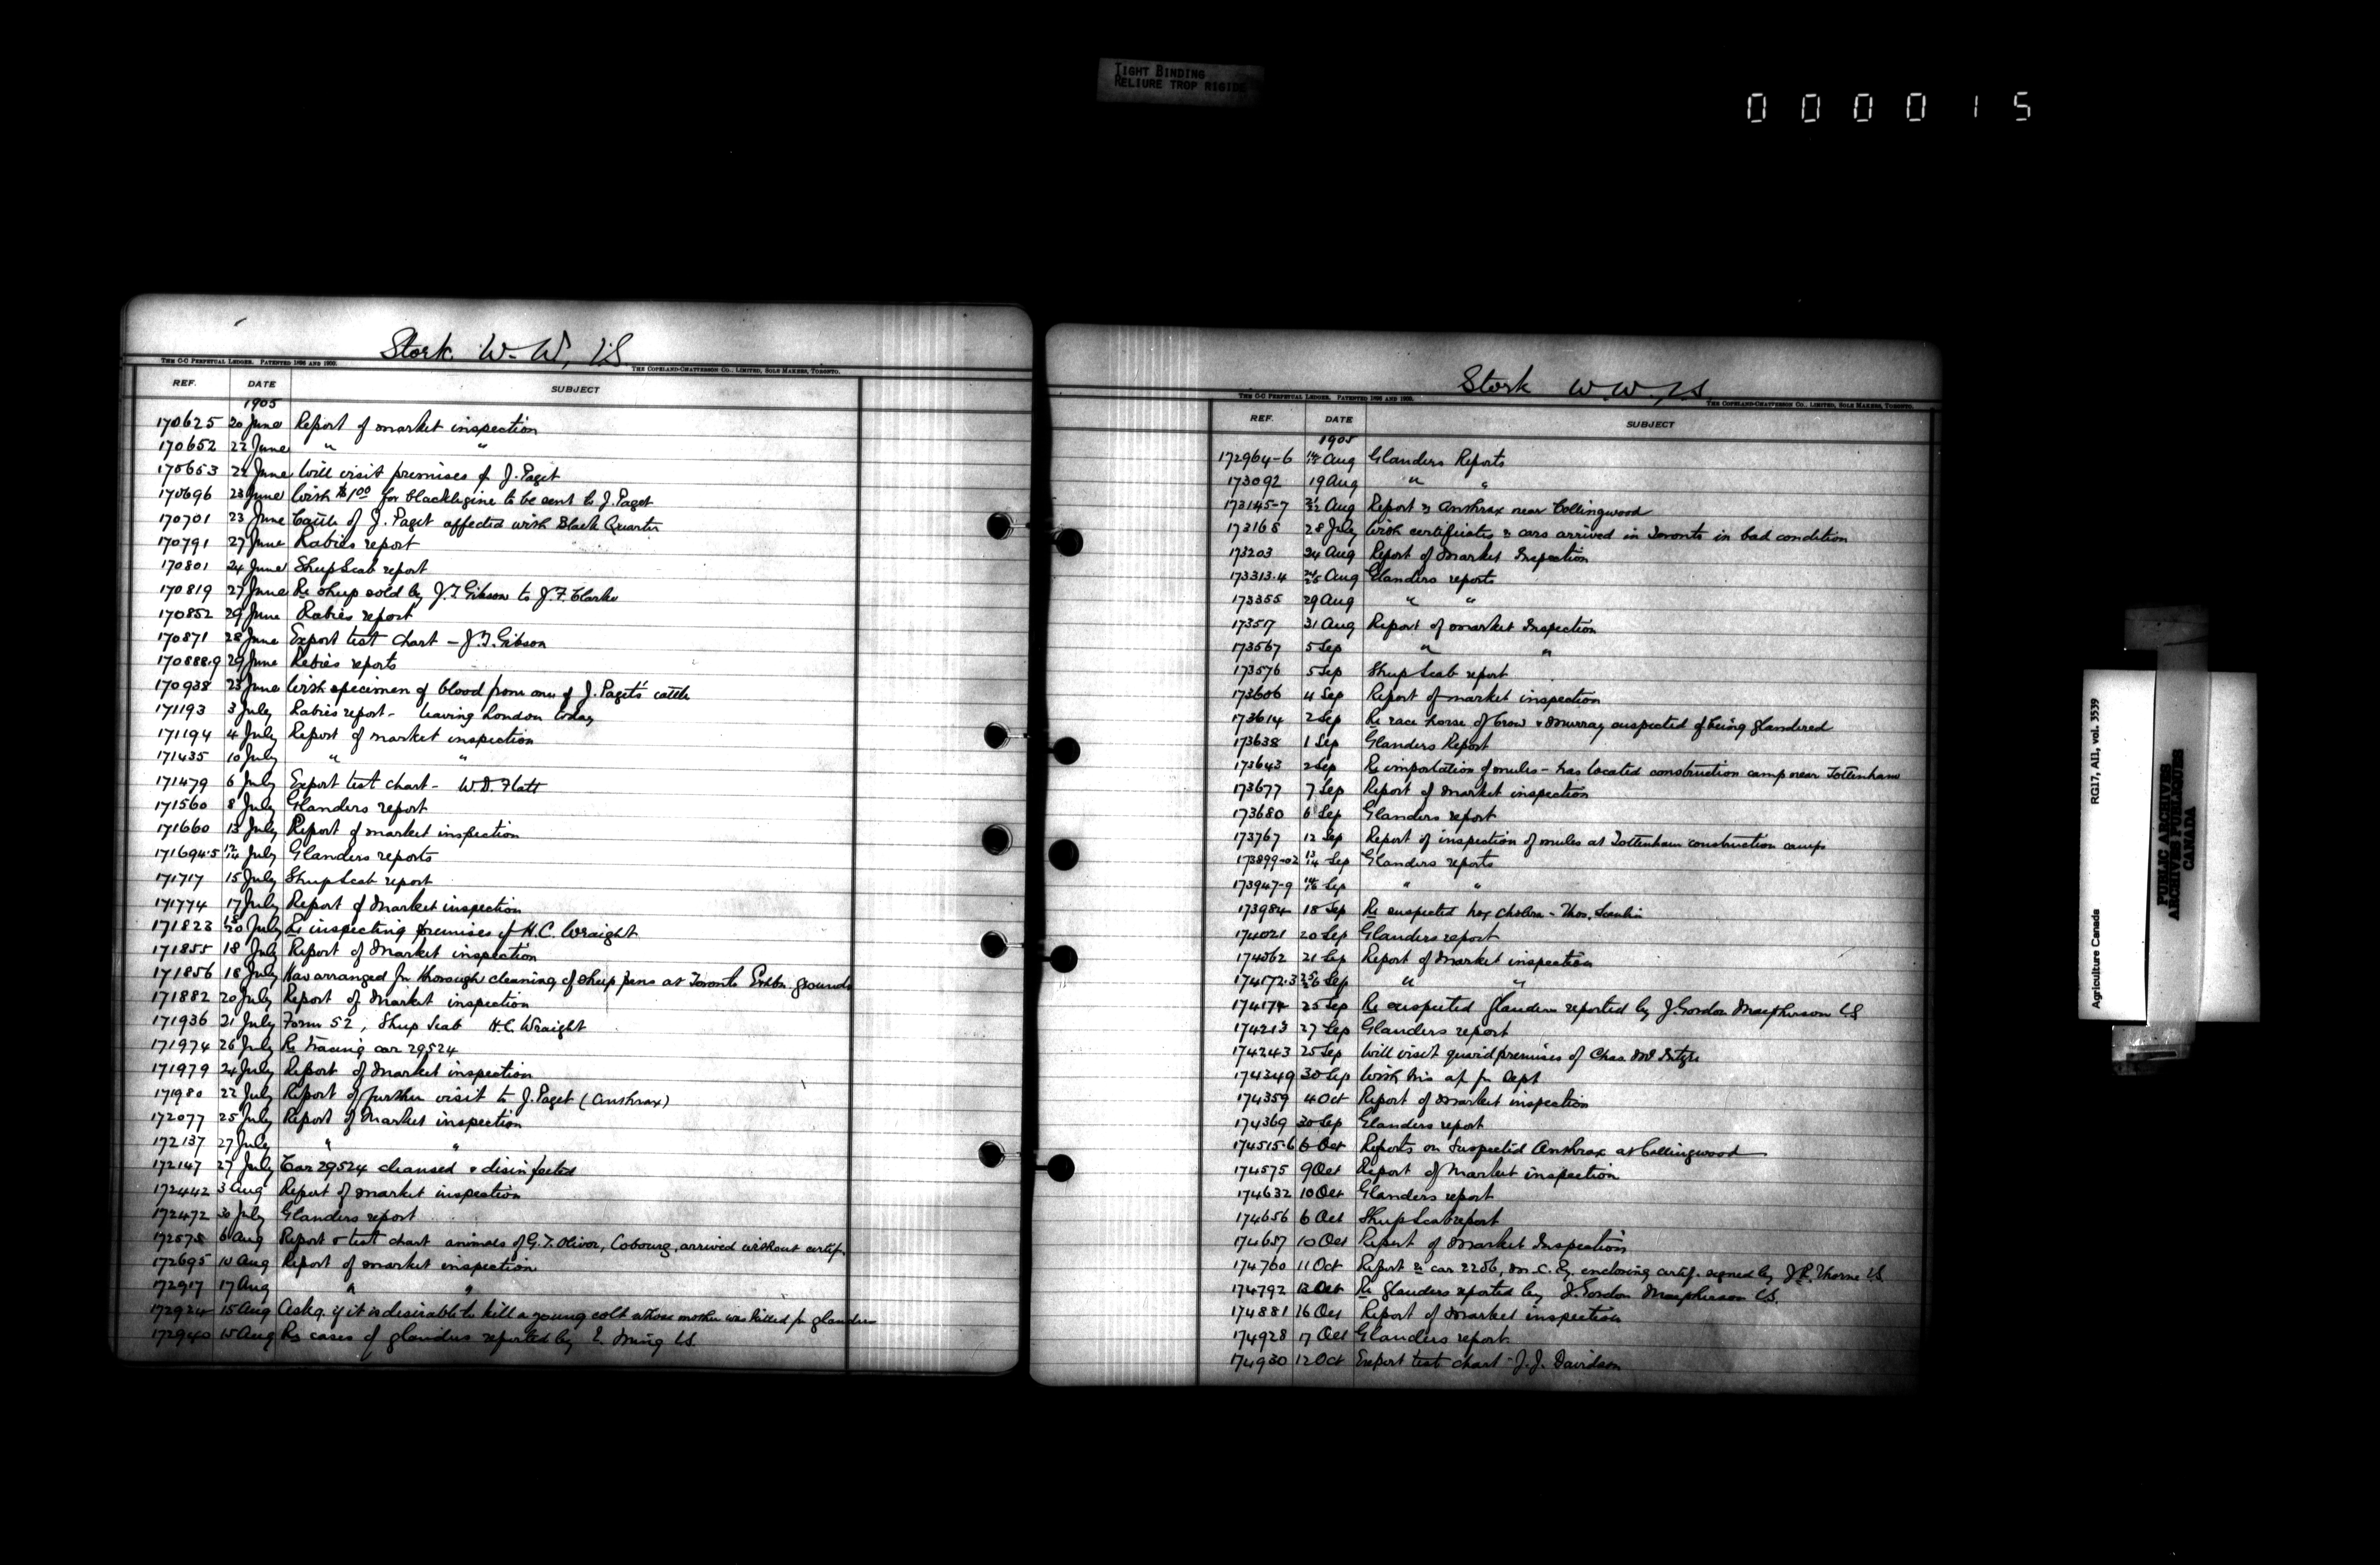 TIGHT BINDING
RELIURE TROP RIGIDE
000015
Stork. W. W, V.S.
THE C-C PERPETUAL LEDGER. PATENTED 1896 AND 1900.
THE COPELAND-CHATTERSON CO., LIMITED, SOLE MAKERS, TORONTO.
REF. DATE SUBJECT
1905
170625 20 June Report of market inspection
170652 22 June " "
170653 22 June Will visit premises of J. Paget
170696 23 June With $1.00 for blacklegine to be sent to J. Paget
170701 23 June Cattle of J. Paget affected with Black Quarter
170791 27 June Rabies report
170801 24 June Sheep Scab report
170819 27 June Re sheep sold by J.T. Gibson to J.F. Clarke
170852 29 June Rabies report
170871 28 June Export test chart - J.T. Gibson
170888.9 29 June Rabies reports
170938 23 June With specimen of blood from one of J. Paget's cattle
171193 3 July Rabies report - leaving London today
171194 4 July Report of market inspection
171435 10 July " "
171479 6 July Export test chart - W.D. Flatt
171560 8 July Glanders report
171660 13 July Report of market inspection
171694.5 12/14 July Glanders reports
171717 15 July Sheep Scab report
171774 17 July Report of market inspection
171823 18/20 July Re inspecting premises of H.C. Wraight
171855 18 July Report of market inspection
171856 18 July Has arranged for thorough cleaning of sheep pens at Toronto Exbn. grounds
171882 20 July Report of market inspection
171936 21 July Form 52, Sheep Scab H.C. Wraight
171974 26 July Re tracing car 29524
171979 24 July Report of market inspection
171980 22 July Report of further visit to J. Paget (Anthrax)
172077 25 July Report of market inspection
172137 27 July " "
172147 27 July Car 29524 cleansed & disinfected
172442 3 Aug Report of market inspection
172472 30 July Glanders report
172575 6 Aug Report & test chart animals of G.T. Oliver, Cobourg, arrived without certif.
172695 10 Aug Report of market inspection
172917 17 Aug " "
172924 15 Aug Askg. if it is desirable to kill a young colt whose mother was killed for glanders
172940 15 Aug Re cases of glanders reported by V.S.
Stork W. W, V.S.
THE C-C PERPETUAL LEDGER. PATENTED 1896 AND 1900.
THE COPELAND-CHATTERSON CO., LIMITED, SOLE MAKERS, TORONTO.
REF. DATE SUBJECT
1905
172964-6 Aug Glanders Reports
173092 19 Aug " "
173145-7 21/22 Aug Report re Anthrax near Collingwood
173168 28 July With certificates re cars arrived in Toronto in bad condition
173203 24 Aug Report of Market Inspection
173313.4 24/25 Aug Glanders reports
173355 29 Aug " "
173517 31 Aug Report of market Inspection
173567 5 Sep " "
173576 5 Sep Sheep Scab report
173606 4 Sep Report of market inspection
173614 2 Sep Re race horse of Crow & Murray suspected of being glandered
173638 1 Sep Glanders Report
173643 2 Sep Re importation of mules - has located construction camp near Tottenham
173677 7 Sep Report of market inspection
173680 6 Sep Glanders report
173767 12 Sep Report of inspection of mules at Tottenham construction camps
173899-02 13/14 Sep Glanders reports
173947-9 14/16 Sep " "
173984 18 Sep Re suspected hog cholera - Thos. Scanlin
174021 20 Sep Glanders report
174062 21 Sep Report of Market inspection
174172.3 25/26 Sep " "
174174 25 Sep Re suspected glanders reported by J. Gordon Macpherson V.S.
174213 27 Sep Glanders report
174243 25 Sep Will visit quard premises of Chas.
174349 30 Sep With his a/c for Sept
174359 4 Oct Report of market inspection
174369 30 Sep Glanders report
174515.6 6 Oct Reports on suspected Anthrax at Collingwood
174575 9 Oct Report of Market inspection
174632 10 Oct Glanders report
174656 6 Oct Sheep Scab report
174657 10 Oct Report of Market Inspection
174760 11 Oct Report re car 2256, M.C. Ry. enclosing certif. signed by J.R. Thorne V.S.
174792 13 Oct Re glanders reported by J. Gordon Macpherson V.S.
174881 16 Oct Report of Market inspection
174928 17 Oct Glanders report.
174930 12 Oct Export test chart - J.J. Davidson
Agriculture Canada RG17, AI1, vol. 3539
PUBLIC ARCHIVES
ARCHIVES PUBLIQUES
CANADA